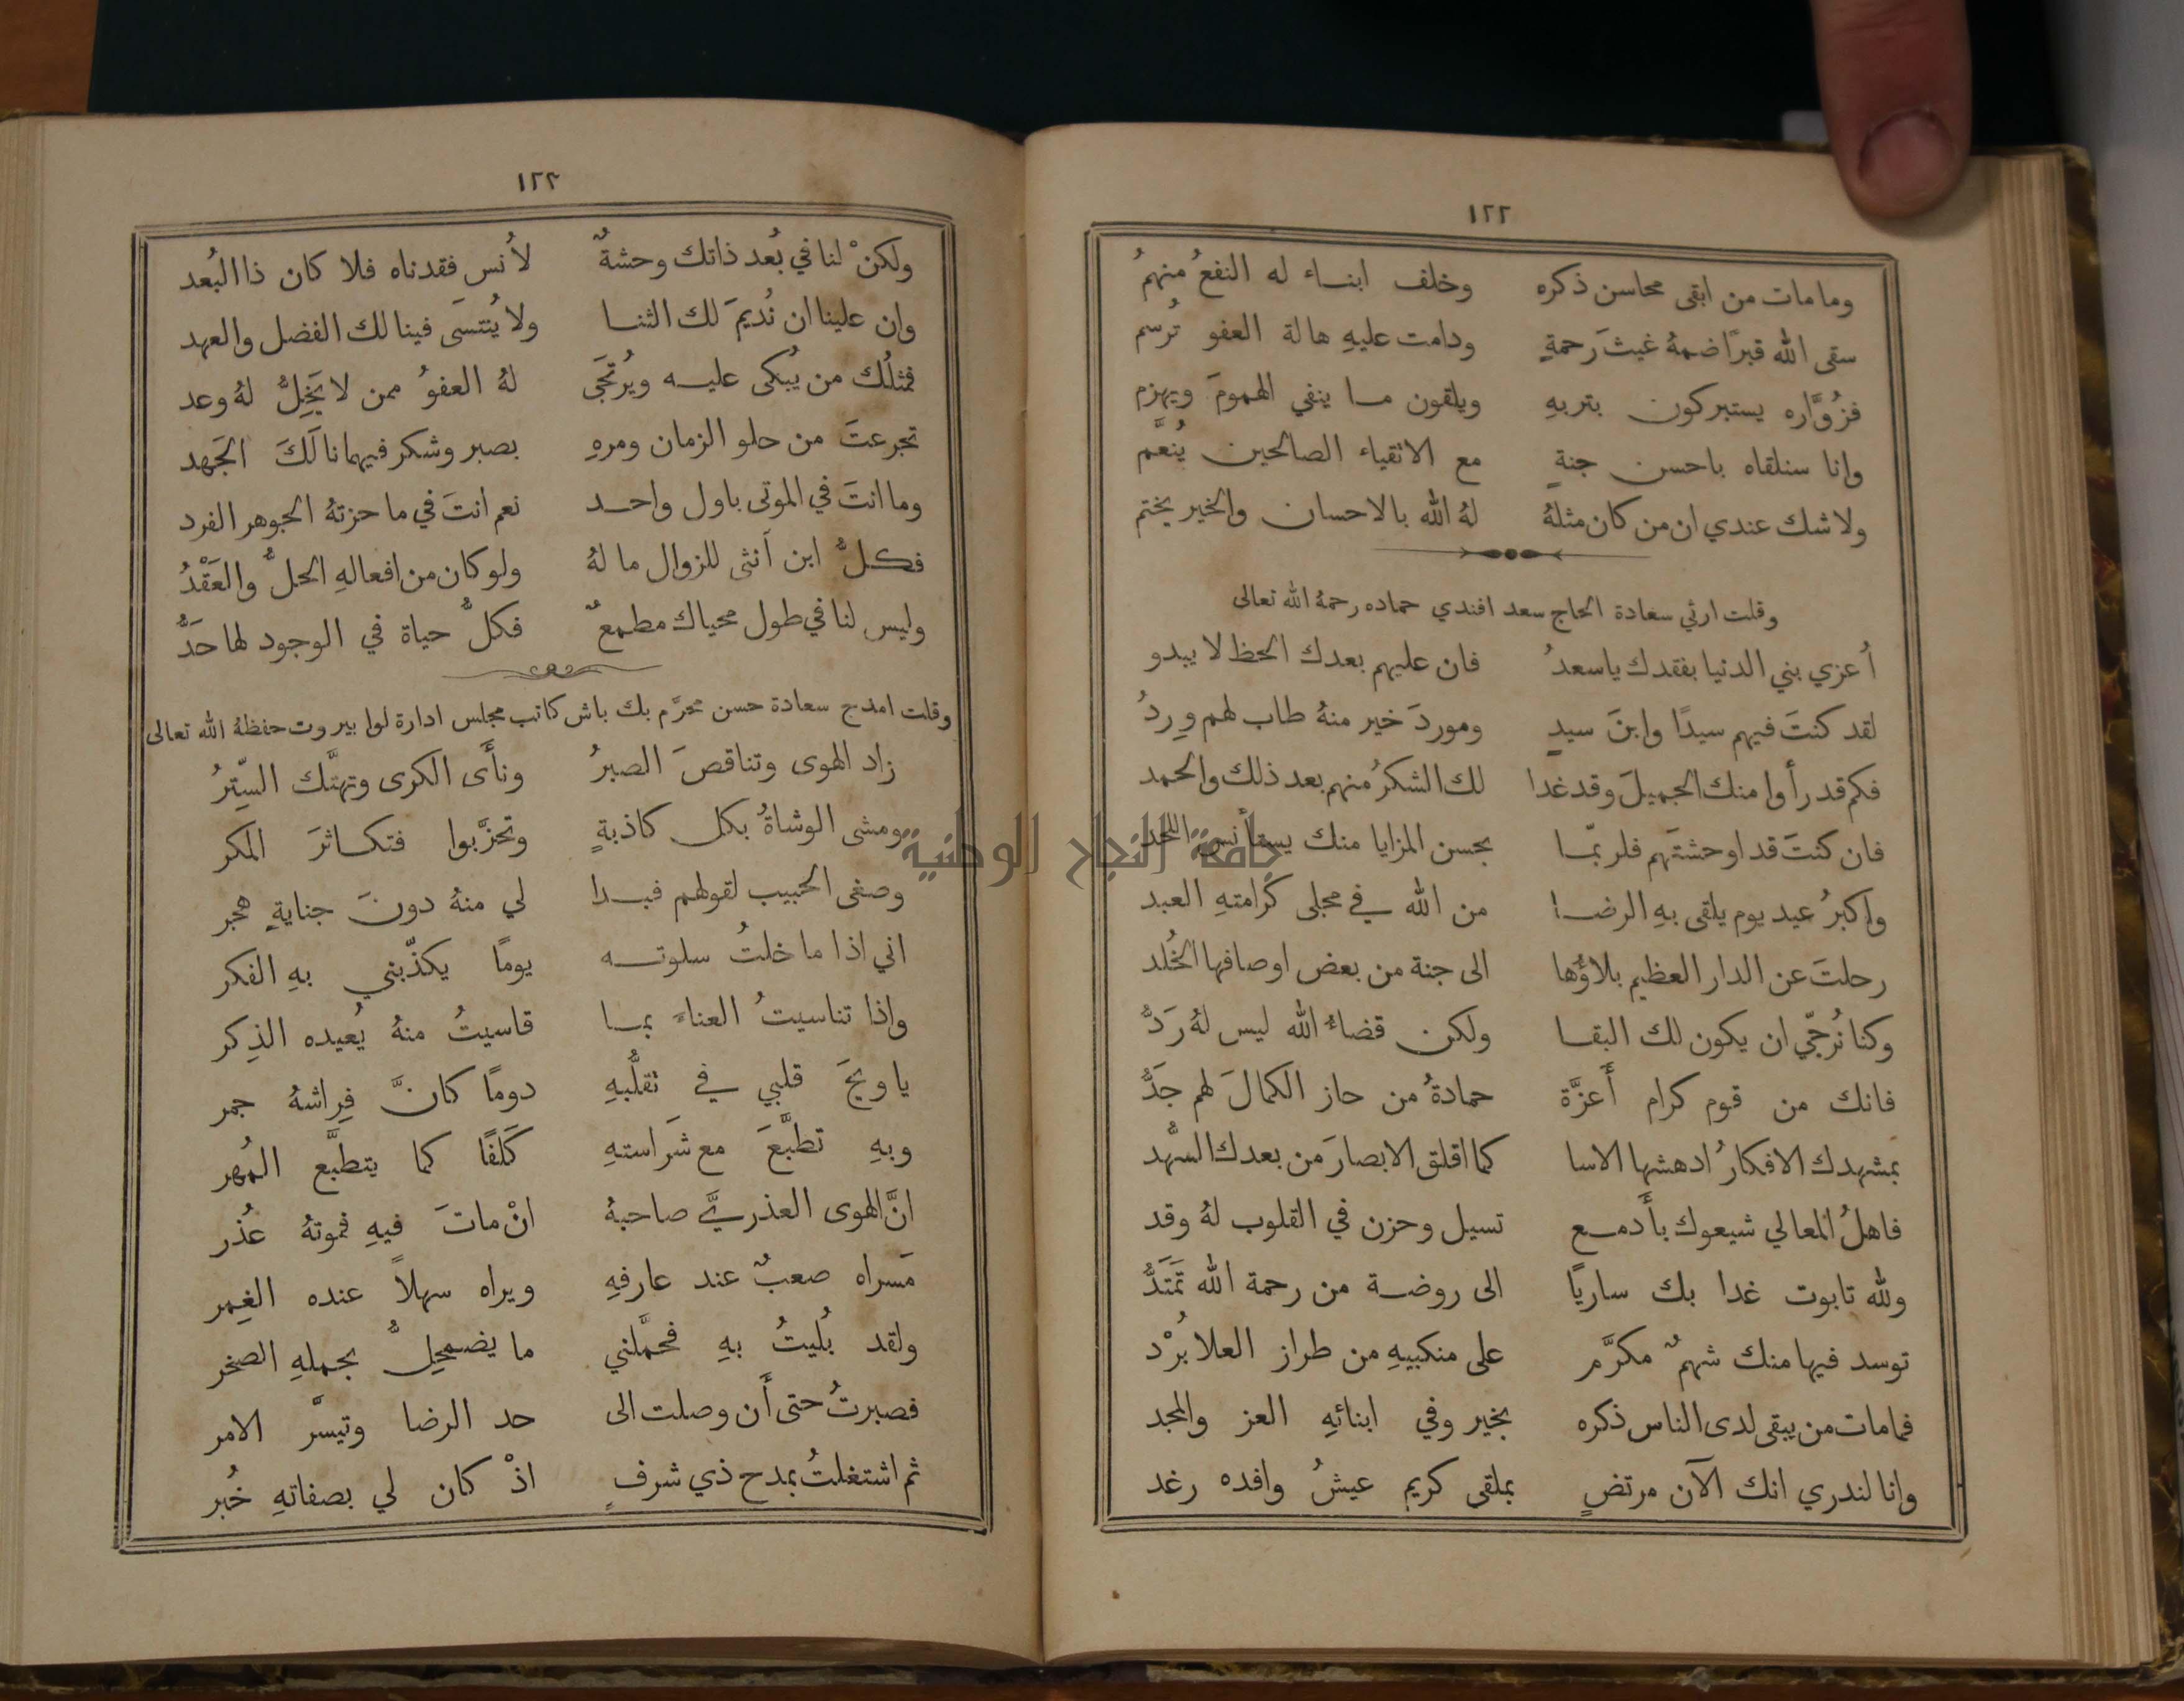 ١٢٢
وما مات من ابقى محاسن ذكره وخلف ابناء له النفعُ منهمُ
سقى الله قبرًا ضمهُ غيثَ رحمةٍ ودامت عليهِ هالة العفو تُرسم
فزُوَّاره يستبركون بتربهِ ويلقون ما ينفي الهمومَ ويهزم
وانا سنلقاه باحسن جنةٍ مع الاتقياء الصالحين يُنعَّم
ولا شك عندي ان من كان مثلهُ لهُ الله بالاحسان والخير يختم
وقلت ارثي سعادة الحاج سعد افندي حماده رحمهُ الله تعالى
أُعزي بني الدنيا بفقدك يا سعدُ فان عليهم بعدك الحظ لا يبدو
لقد كنتَ فيهم سيدًا وابنَ سيدٍ وموردَ خير منهُ طاب لهم وِردُ
فكم قد رأوا منك الجميلَ وقد غدا لك الشكرُ منهم بعد ذلك والحمد
فان كنتَ قد اوحشتَهم فلربّما بحسن المزايا منك يستأنس اللحد
واكبرُ عيد يوم يلقى بهِ الرضا من الله في مجلى كرامتهِ العبد
رحلتَ عن الدار العظيم بلاؤُها الى جنة من بعض اوصافها الخُلد
وكنا نُرجّي ان يكون لك البقا ولكن قضاءُ الله ليس لهُ رَدُّ
فانك من قوم كرام أَعزَّة حمادةُ من حاز الكمالَ لهم جَدُّ
بمشهدك الافكارُ ادهشها الاسا كما اقلق الابصارَ من بعدك السُّهد
فاهلُ المعالي شيعوك بأَدمع تسيل وحزن في القلوب لهُ وقد
ولله تابوت غدا بك ساريًا الى روضة من رحمة الله تَمتَدُّ
توسد فيها منك شهمٌ مكرَّم على منكبيهِ من طراز العلا بُرْد
فما مات من يبقى لدى الناس ذكره بخير وفي ابنائهِ العز والمجد
وانا لندري انك الآن مرتضٍ بملقى كريمٍ عيشُ وافده رغد
١٢٣
ولكنْ لنا في بُعد ذاتك وحشةٌ لأُنس فقدناه فلا كان ذا البُعد
وان علينا ان نُديمَ لك الثنا ولا يُنتسَى فينا لك الفضل والعهد
فمثلُك من يُبكى عليه ويُرتَجَى لهُ العفوُ ممن لا يَخِلُّ لهُ وعد
تجرعتَ من حلو الزمان ومرهِ بصبر وشكر فيهما نالَكَ الجَهد
وما انتَ في الموتى باول واحد نعم انتَ في ما حزتهُ الجوهر الفرد
فكلُّ ابن أنثى للزوال ما لهُ ولو كان من افعالهِ الحلُّ والعَقْدُ
وليس لنا في طول محياك مطمعٌ فكلُّ حياة في الوجود لها حَدُّ
وقلت امدح سعادة حسن محرَّم بك باش كاتب مجلس ادارة لوا بيروت حفظهُ الله تعالى
زاد الهوى وتناقصَ الصبرُ ونأَى الكرى وتهتَّك السِّترُ
ومشى الوشاةُ بكل كاذبةٍ وتحزَّبوا فتكاثرَ المكر
وصغى الحبيب لقولهم فبدا لي منهُ دونَ جنايةٍ هجر
اني اذا ما خلتُ سلوته يومًا يكذّبني بهِ الفكر
واذا تناسيتُ العناءَ بما قاسيتُ منهُ يُعيده الذِكر
يا ويحَ قلبي في تقلُّبهِ دومًا كانَّ فِراشهُ جمر
وبهِ تطبَّعَ مع شَراستهِ كَلفًا كما يتطبَّع المُهر
انَّ الهوى العذريَّ صاحبهُ انْ ماتَ فيهِ فموتهُ عُذر
مَسراه صعبٌ عند عارفهِ ويراه سهلاً عنده الغِمر
ولقد بُليتُ بهِ فحمَّلني ما يضمحِلُّ بجملهِ الصخر
فصبرتُ حتى أَن وصلت الى حد الرضا وتيسَّر الامر
ثم اشتغلتُ بمدح ذي شرفٍ اذْ كان لي بصفاتهِ خُبر
جامعة النجاح الوطنية